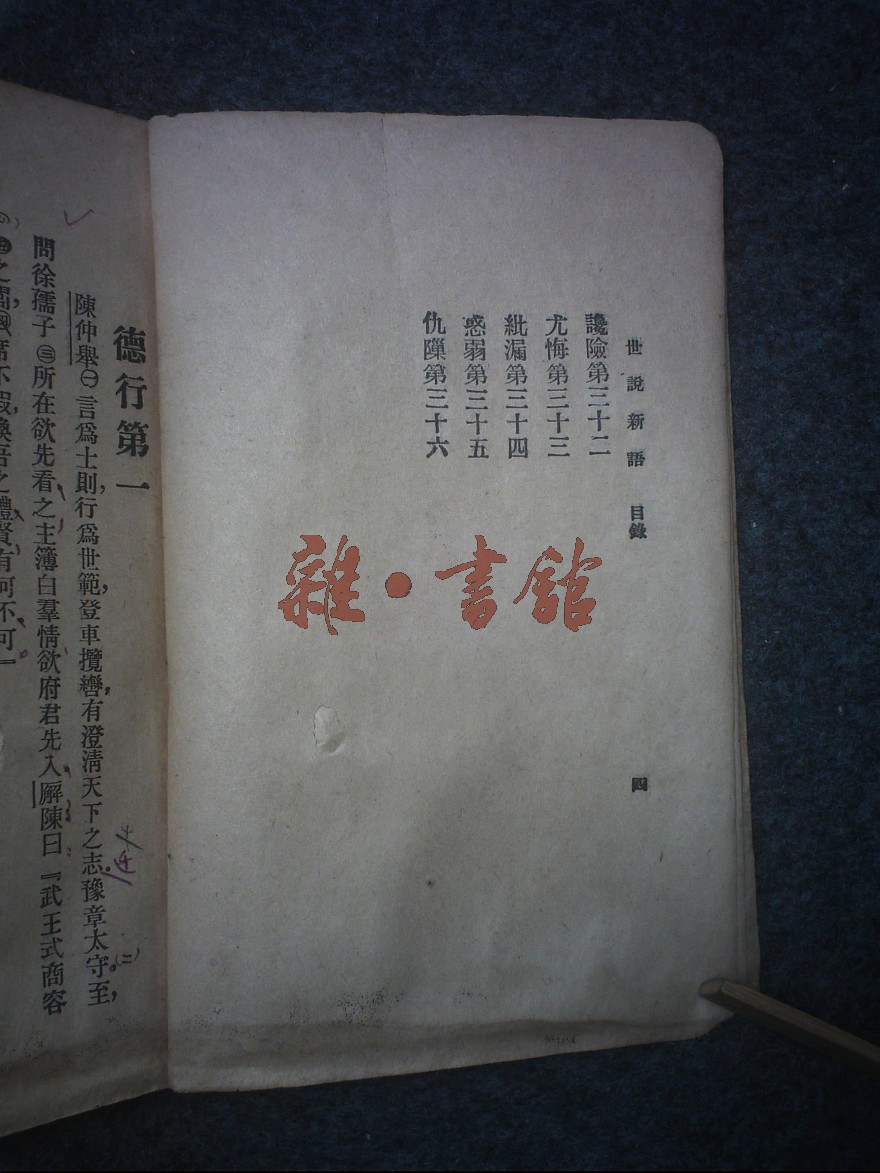 世說新語　目錄
四
讒險第三十二
尤悔第三十三
紕漏第三十四
惑弱第三十五
仇隟第三十六
雜·書館
德行第一
陳仲舉㊀言爲士則,行爲世範,登車攬轡,有澄清天下之志.豫章太守.(二)至,
問徐孺子㊂所在欲先看之主簿白羣情欲府君先入廨陳曰『武王式商容
席不暇煖吾之禮賢有何不可』